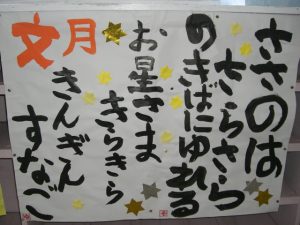 ささのは
さらさら
のきばにゆれる
お星さま
きらきら
きんぎん
すなご
文月